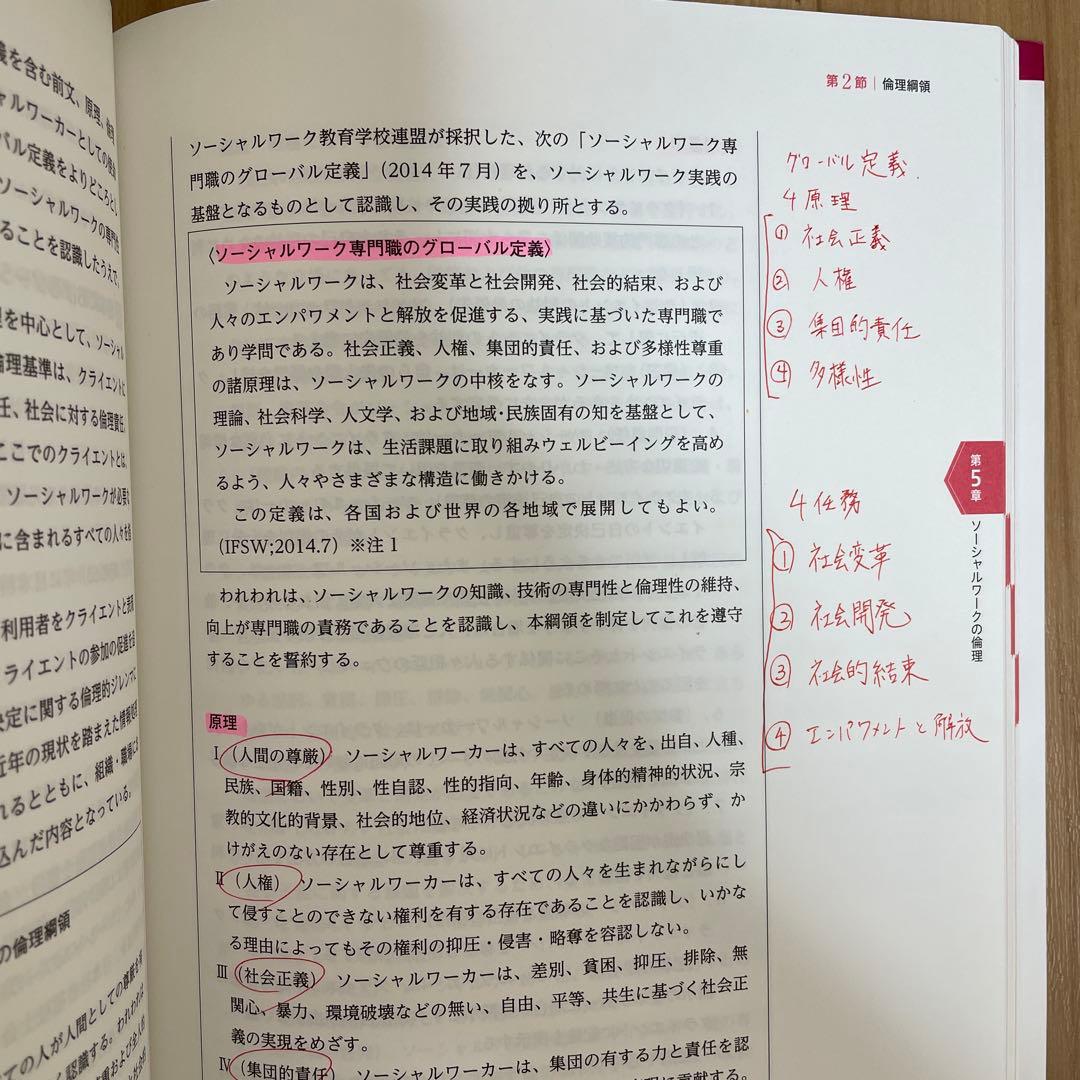 義を含む前文、原理、倫理
ャルワーカーとしての
バル定義をよりどころとし
ソーシャルワークの専門性
ることを認識したうえで、
を中心として、ソーシャル
倫理基準は、クライエントに
任、社会に対する倫理責任、
ここでのクライエントとは、
ソーシャルワークが必要な
に含まれるすべての人々を
利用者をクライエントと表
ライエントの参加の促進を
決定に関する倫理的ジレンマに
近年の現状を踏まえた情報
れるとともに、組織・職場に
込んだ内容となっている。
の倫理綱領
ての人が人間としての尊厳を
く認識する。われわれは
第2節｜倫理綱領
ソーシャルワーク教育学校連盟が採択した、次の「ソーシャルワーク専
門職のグローバル定義」（2014年7月）を、ソーシャルワーク実践の
基盤となるものとして認識し、その実践の拠り所とする。
〈ソーシャルワーク専門職のグローバル定義〉
ソーシャルワークは、社会変革と社会開発、社会的結束、および
人々のエンパワメントと解放を促進する、実践に基づいた専門職で
あり学問である。社会正義、人権、集団的責任、および多様性尊重
の諸原理は、ソーシャルワークの中核をなす。ソーシャルワークの
理論、社会科学、人文学、および地域・民族固有の知を基盤として、
ソーシャルワークは、生活課題に取り組みウェルビーイングを高め
るよう、人々やさまざまな構造に働きかける。
この定義は、各国および世界の各地域で展開してもよい。
（IFSW;2014.7）※注1
われわれは、ソーシャルワークの知識、技術の専門性と倫理性の維持、
向上が専門職の責務であることを認識し、本綱領を制定してこれを遵守
することを誓約する。
原理
Ⅰ（人間の尊厳） ソーシャルワーカーは、すべての人々を、出自、人種、
民族、国籍、性別、性自認、性的指向、年齢、身体的精神的状況、宗
教的文化的背景、社会的地位、経済状況などの違いにかかわらず、か
けがえのない存在として尊重する。
Ⅱ（人権） ソーシャルワーカーは、すべての人々を生まれながらにし
て侵すことのできない権利を有する存在であることを認識し、いかな
る理由によってもその権利の抑圧・侵害・略奪を容認しない。
Ⅲ（社会正義） ソーシャルワーカーは、差別、貧困、抑圧、排除、無
関心、暴力、環境破壊などの無い、自由、平等、共生に基づく社会正
義の実現をめざす。
Ⅳ（集団的責任） ソーシャルワーカーは、集団の有する力と責任を認
に貢献する。
グローバル定義.
4原理
① 社会正義
② 人権
③ 集団的責任
④ 多様性
4任務
① 社会変革
② 社会開発
③ 社会的結束
④ エンパワメントと解放
第5章
ソーシャルワークの倫理